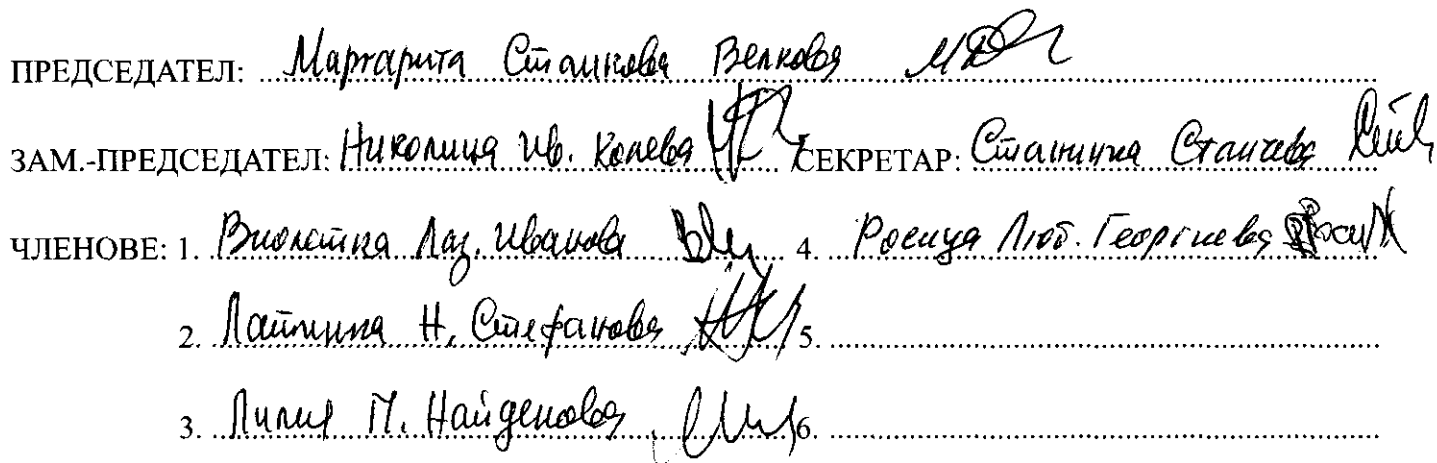 ПРЕДСЕДАТЕЛ: Маргарита Станкова Велкова
ЗАМ.-ПРЕДСЕДАТЕЛ: Николица Ив. Колева СЕКРЕТАР: Станинка Станчева
ЧЛЕНОВЕ: 1. Виолетка Лаз. Иванова 4. Росица Люб. Георгиева
2. Латинка Н. Стефанова 5.
3. Лилия П. Найденова 6.